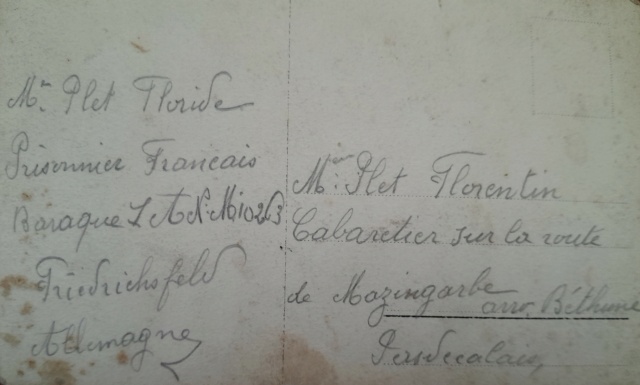 Mr Plet Floride
Prisonnier Francais
Baraque 7 A No M 10263
Friedrichsfeld
Allemagne
Mr Plet Florentin
Cabaretier sur la route
de Mazingarbe arr. Béthune
Pasdecalais,